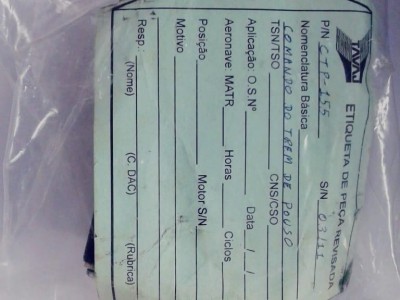 TAVAJ
ETIQUETA DE PEÇA REVISADA
P/N CTP-155 S/N 03/11
Nomenclatura Básica
COMANDO DO TREM DE POUSO
TSN/TSO CNS/CSO
Aplicação: O.S.Nº Data / /
Aeronave: MATR. Horas Ciclos
Posição Motor S/N
Motivo
Resp.
(Nome) (C. DAC) (Rubrica)